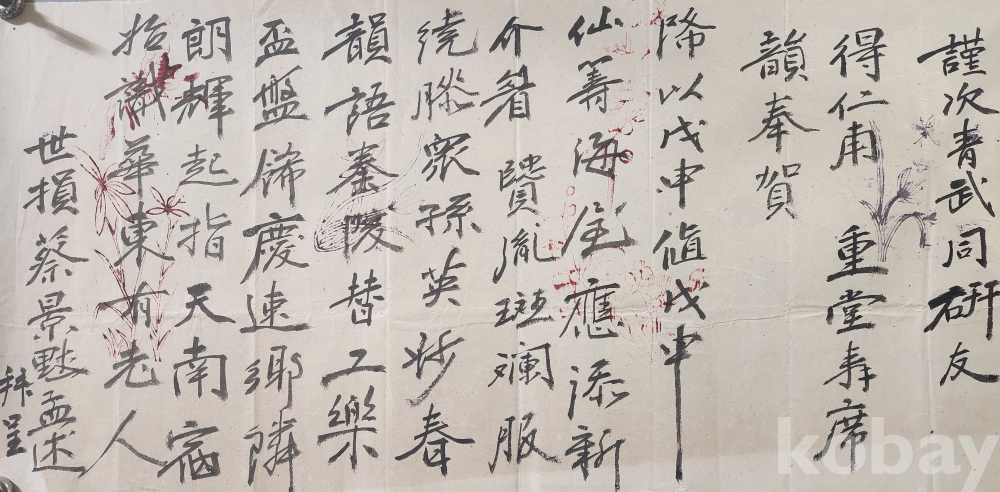 謹次青武同研友
得仁甫 重堂壽席
韻奉賀
降以戊申値戊申
仙籌海屋應添新
介眉 賢胤斑斕服
繞膝衆孫英妙春
韻語臺陵替工樂
盃盤餙慶速鄉隣
朗輝起指天南宿
始識華東有老人
世損蔡景 孟述
拜呈
kobay